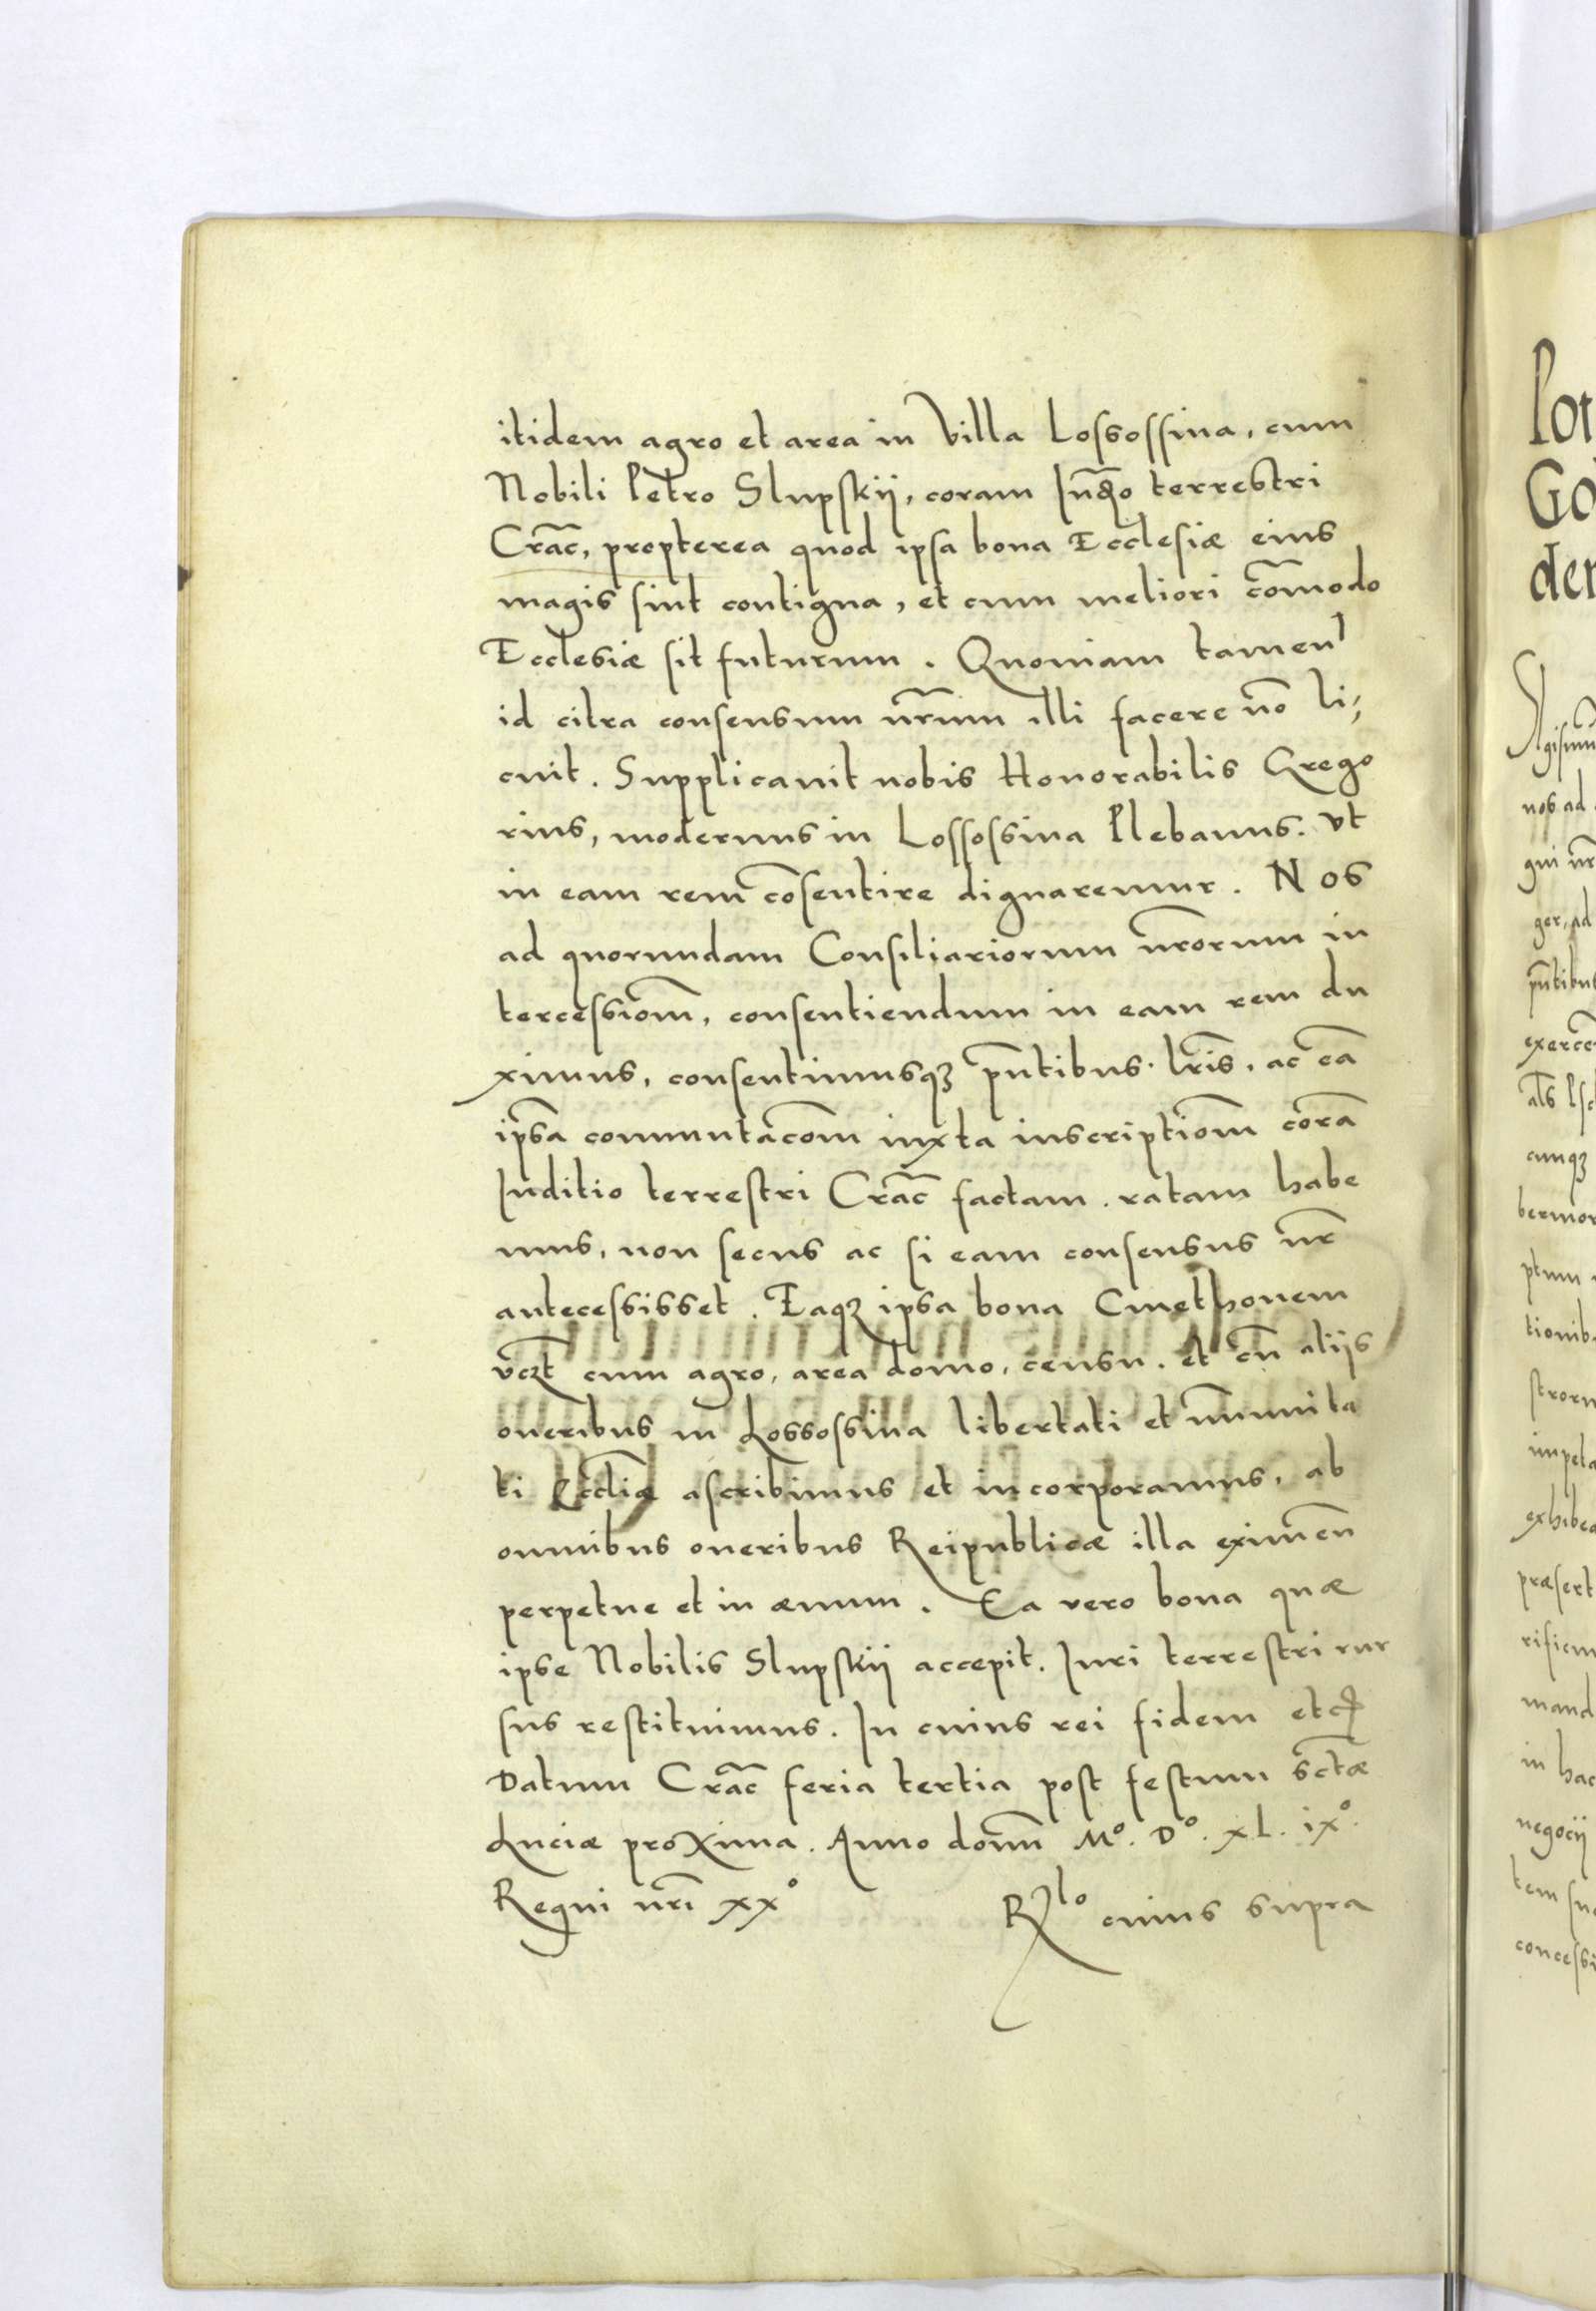 itidem agro et area in Villa Lossossina, cum
Nobili Petro Slupskij, coram
terrestri
Crac̄, propterea quod ipsa bona Ecclesiæ eius
magis sint contigua, et cum meliori com̄odo
Ecclesiæ sit futurum. Quoniam tamen
id citra consensum nr̄um illi facere nō li⸗
cuit. Supplicauit nobis Honorabilis Grego
rius, modernus in Lossossina Plebanus. vt
in eam rem cōsentire dignaremur. Nos
ad quorundam Consiliariorum nr̄orum in
tercessiom̄, consentiendum in eam rem du
ximus, consentimusqꝫ pn̄tibus. lr̄is. ac eā
ipsā commutacōm iuxta inscriptiom̄ corā
Iuditio terrestri Crac̄ factam. ratam habe
mus, non secus ac si eam consensus nr̄
antecessisset. Eaqꝫ ipsa bona Cmethonem
vꝫt cum agro, area domo, censu. et cū alijs
oneribus in Lossossina libertati et im̄unita
ti Eccliæ ascribimus et incorporamus, ab
omnibus oneribus Reipublicæ illa eximeñ
perpetue et in æuum. Ea vero bona quæ
ipse Nobilis Slupskij accepit. Iuri terrestri rur
sus restituimus. In cuius rei fidem etc̄
Datum Crac̄ feria tertia post festum sctæ
Luciæ proxima. Anno domī Mº. Dº. xL. ixº.
Regni nr̄i xxº
Rlo cuius supra